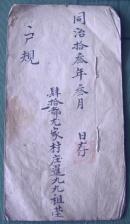 同治拾叁年叁月 日存
肆拾都尤家村庄選九九祖塋
户規